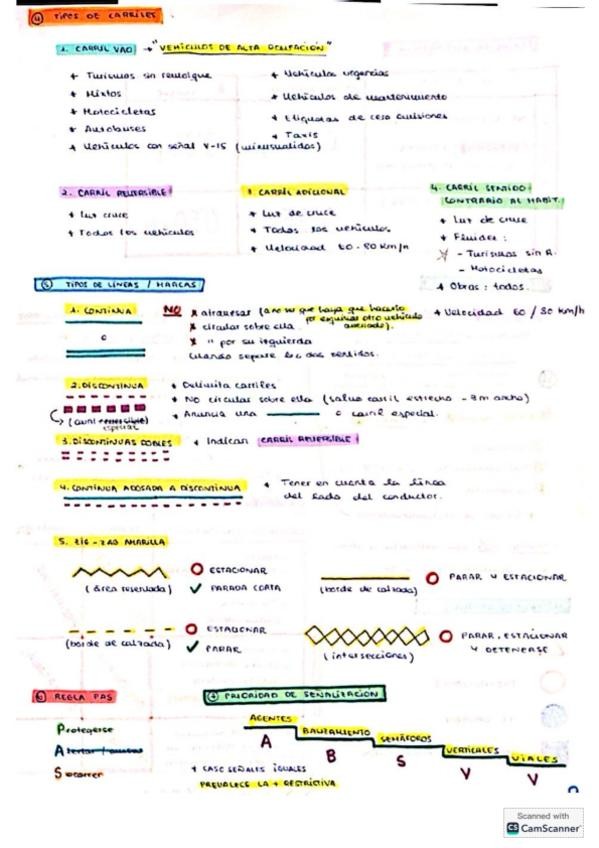 ④ TIPOS DE CARRILES
1. CARRIL VAO → "VEHÍCULOS DE ALTA OCUPACIÓN"
+ Turismos sin remolque
+ Mixtos
+ Motocicletas
+ Autobuses
+ Vehículos con señal V-15 (minusválidos)
+ Vehículos urgencias
+ Vehículos de mantenimiento
+ Etiquetas de cero emisiones
+ Taxis
2. CARRIL REVERSIBLE
+ Luz cruce
+ Todos los vehículos
3. CARRIL ADICIONAL
+ Luz de cruce
+ Todos los vehículos
+ Velocidad 60-80 Km/h
4. CARRIL SENTIDO
CONTRARIO AL HABIT.
+ Luz de cruce
+ Fluidez:
- Turismos sin R.
- Motocicletas
+ Obras: todos.
+ Velocidad 60/80 km/h
⑤ TIPOS DE LÍNEAS / MARCAS
1. CONTINUA
o
NO x atravesar (a no ser que haya que hacerlo
por esquivar otro vehículo
x circular sobre ella
x " por su izquierda
Cuando separe los dos sentidos.
2. DISCONTINUA
(carril reversible)
especial
+ Delimita carriles
+ NO circular sobre ella (salvo carril estrecho - 3m ancho)
+ Anuncia una o carril especial.
3. DISCONTINUAS DOBLES + Indican CARRIL REVERSIBLE
4. CONTINUA ADOSADA A DISCONTINUA
+ Tener en cuenta la línea
del lado del conductor.
5. ZIG-ZAG AMARILLA
(área reservada)
O ESTACIONAR
✓ PARADA CORTA
(borde de calzada)
O PARAR Y ESTACIONAR
(borde de calzada)
O ESTACIONAR
✓ PARAR
(intersecciones)
O PARAR, ESTACIONAR
Y DETENERSE
⑥ REGLA PAS
Protegerse
A
Socorrer
⑦ PRIORIDAD DE SEÑALIZACIÓN
AGENTES
A
BALIZAMIENTO
B
SEMÁFOROS
S
VERTICALES
V
VIALES
V
+ CASO SEÑALES IGUALES
PREVALECE LA + RESTRICTIVA
Scanned with
CS CamScanner